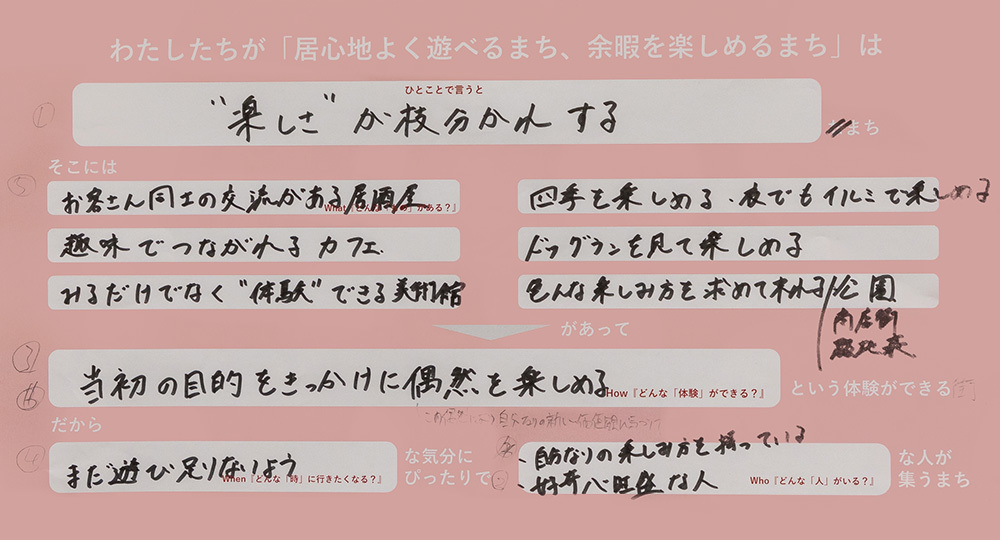 わたしたちが「居心地よく遊べるまち、余暇を楽しめるまち」は
ひとことで言うと
① "楽しさ"が枝分かれする
まち
そこには
お客さん同士の交流がある居酒屋
What『どんな「もの」がある？』
四季を楽しめる・夜でもイルミで楽しめる
趣味でつながれるカフェ
ドッグランを見て楽しめる
みるだけでなく"体験"できる美術館
色んな楽しみ方を求めて来れる公園
商店街
があって
③
当初の目的をきっかけに偶然を楽しめる
How『どんな「体験」ができる？』
という体験ができる街
だから
④ まだ遊び足りないよう
When『どんな「時」に行きたくなる？』
な気分に
ぴったりで
・自分なりの楽しみ方を持っている
・好奇心旺盛な人
Who『どんな「人」がいる？』
な人が
集うまち